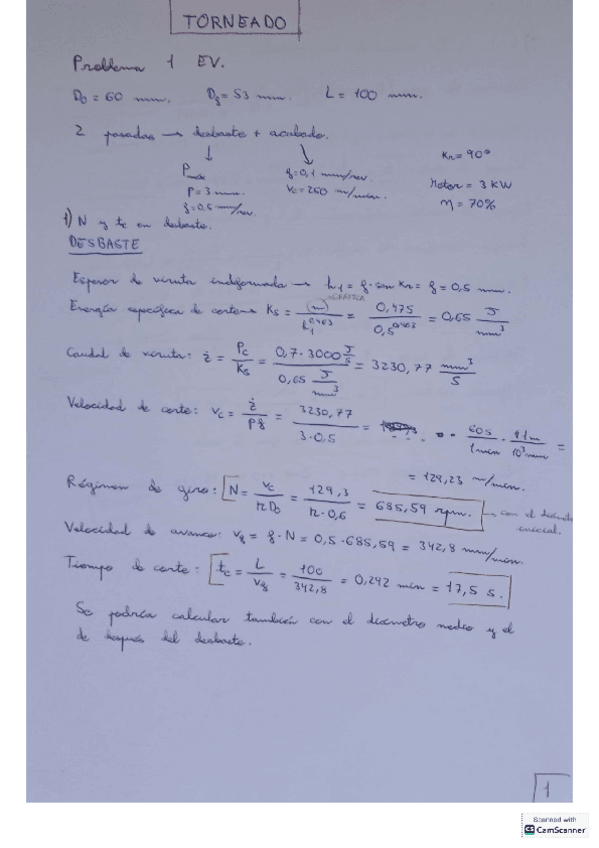 TORNEADO
Problema 1 EV.
D₀ = 60 mm. D_f = 53 mm. L = 100 mm.
2 pasadas → desbaste + acabado.
P = 3 mm.
f = 0,5 mm/rev.
f = 0,1 mm/rev.
Vc = 260 m/min.
Kr = 90°
Motor = 3 KW
η = 70%
1) N y tc en desbaste.
DESBASTE
Espesor de viruta indeformada → h₁ = f · sen Kr = f = 0,5 mm.
Energía específica de corte: Ks = (m) / h₁^0,463 = 0,475 / 0,5^0,463 = 0,65 J/mm³
GRÁFICA
Caudal de viruta: ż = Pc / Ks = 0,7 · 3000 J/s / 0,65 J/mm³ = 3230,77 mm³/s
Velocidad de corte: vc = ż / p f = 3230,77 / 3 · 0,5 = 60s / 1min · 1m / 10³mm =
= 129,23 m/min.
Régimen de giro: N = vc / π D₀ = 129,3 / π · 0,6 = 685,59 rpm. → con el diámetro
inicial.
Velocidad de avance: v_f = f · N = 0,5 · 685,59 = 342,8 mm/min.
Tiempo de corte: tc = L / v_f = 100 / 342,8 = 0,292 min = 17,5 s.
Se podría calcular también con el diámetro medio y el
de después del desbaste.
1
Scanned with
CS CamScanner